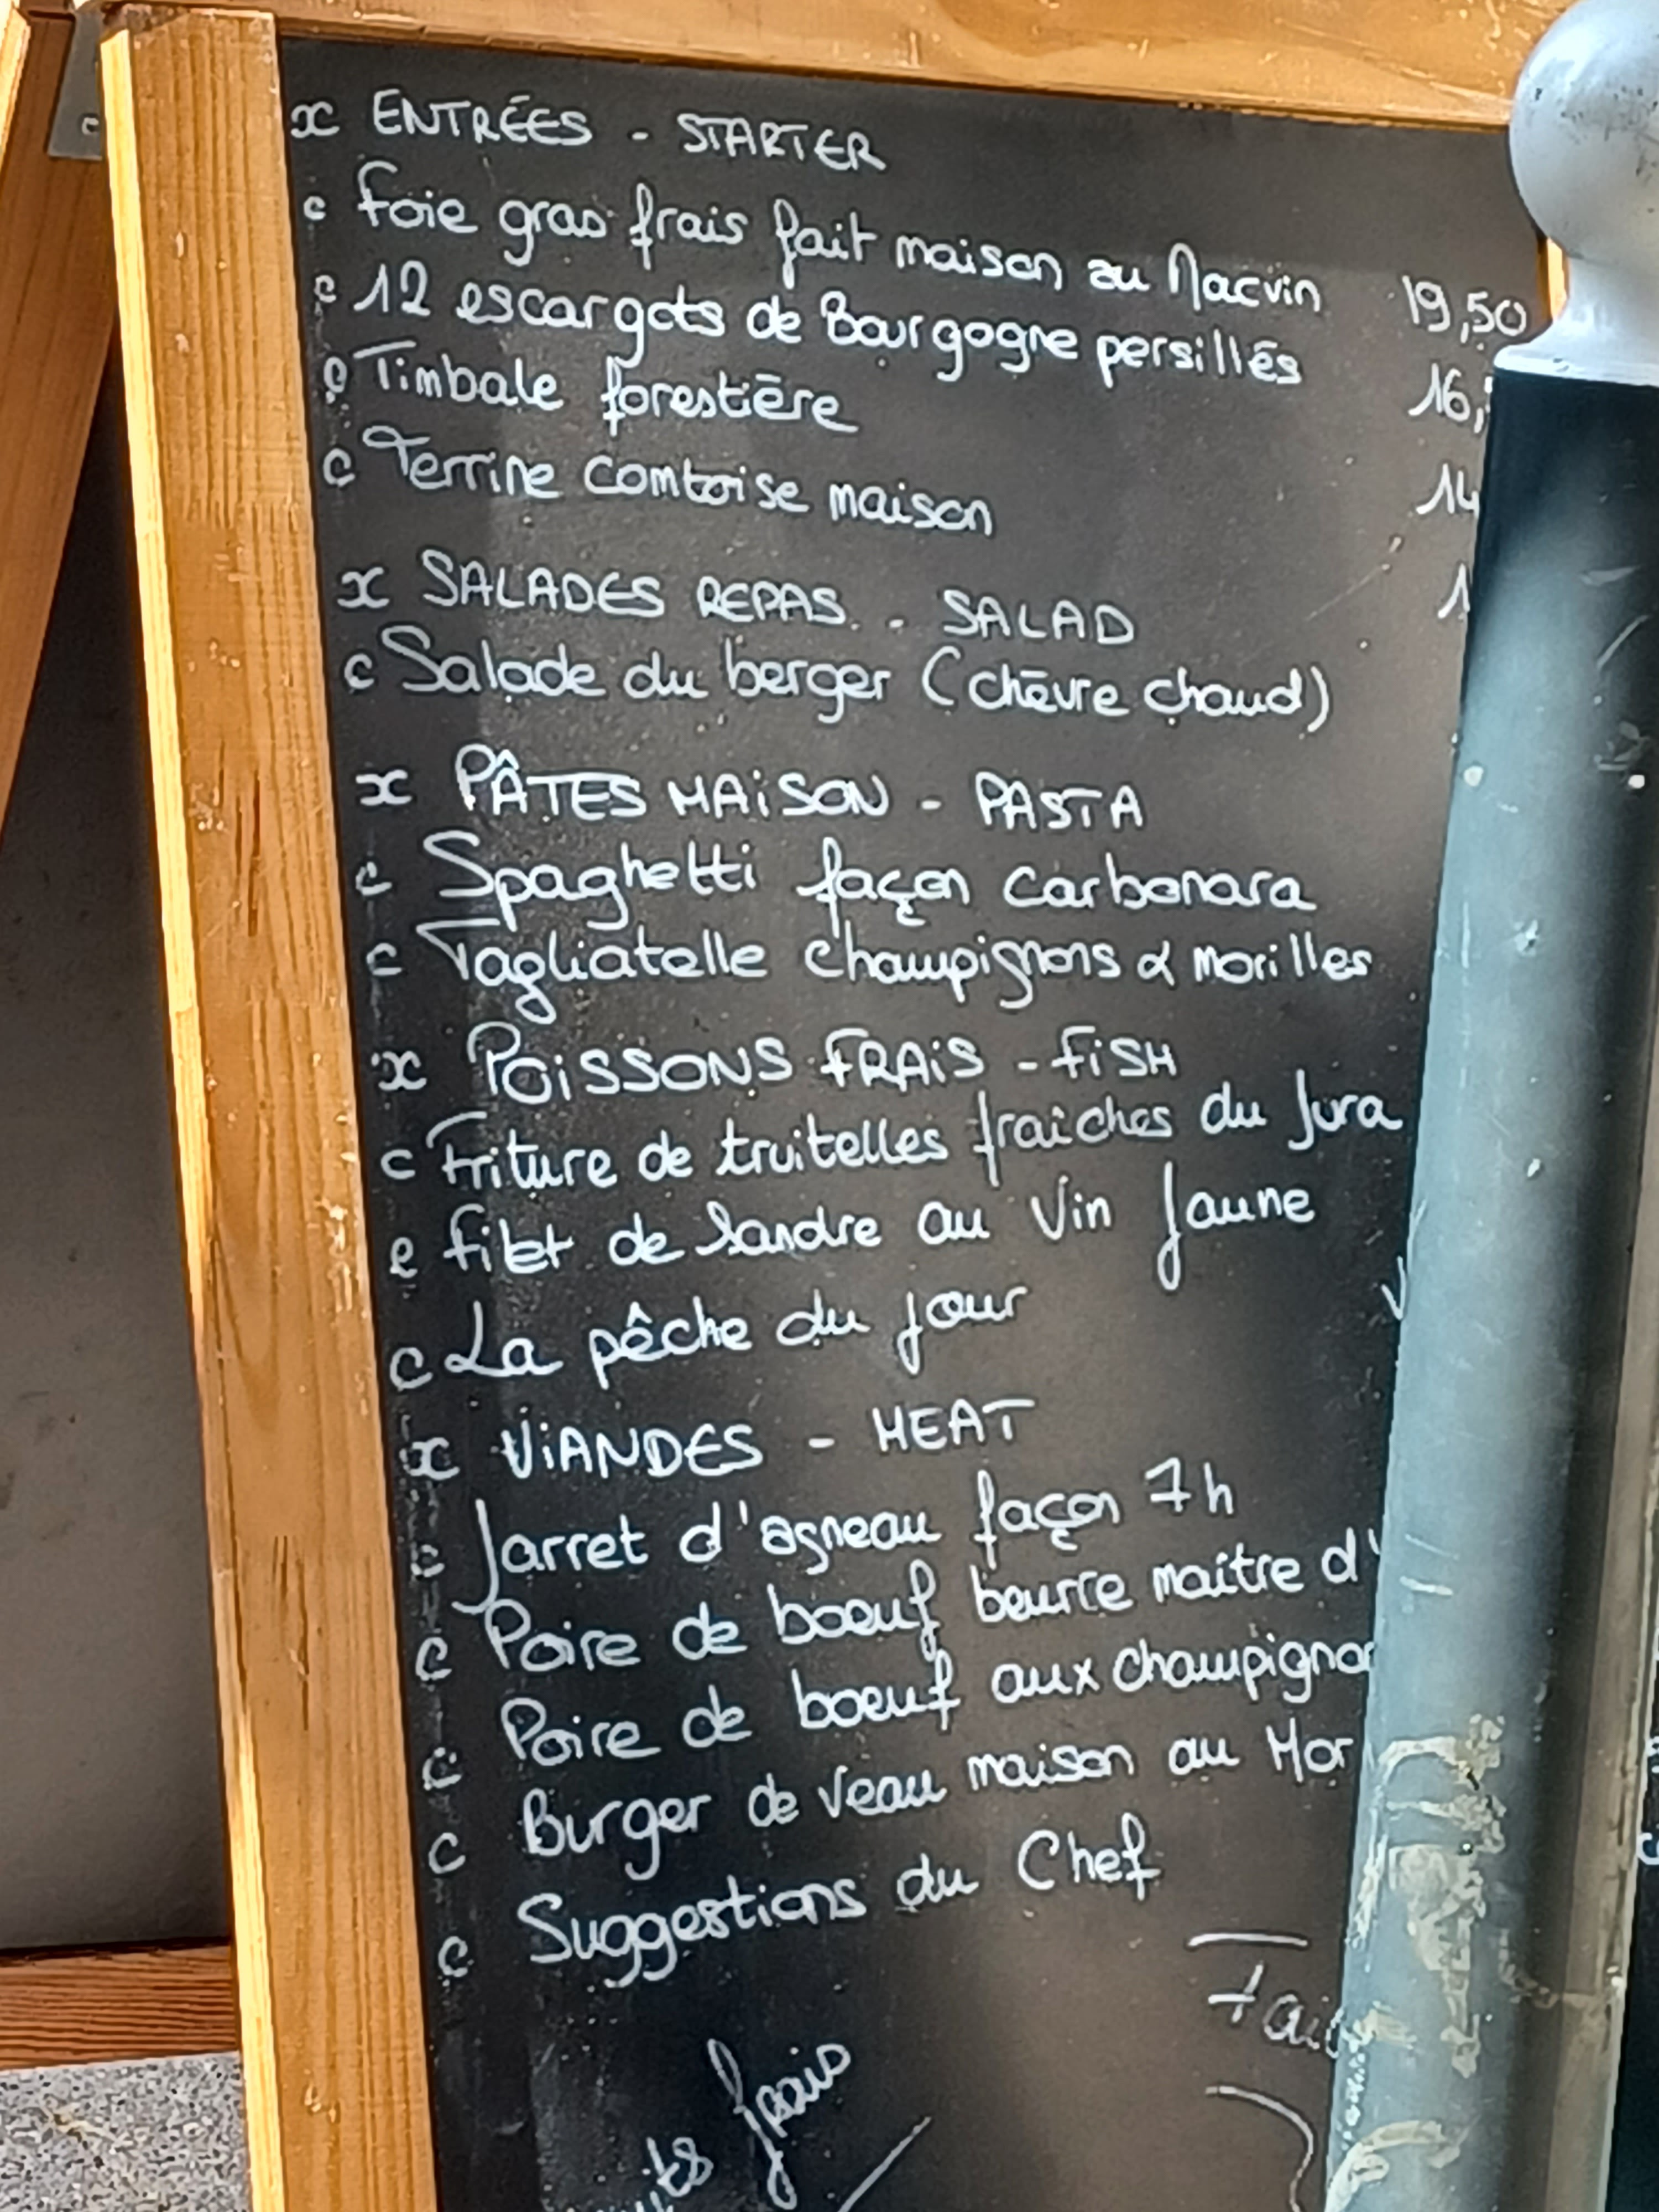 x ENTRÉES - STARTER
c Foie gras frais fait maison au Macvin 19,50
c 12 escargots de Bourgogne persillés 16,
c Timbale forestière 14
c Terrine comtoise maison 1
x SALADES REPAS. - SALAD
c Salade du berger (chèvre chaud)
x PÂTES MAISON - PASTA
c Spaghetti façon carbonara
c Tagliatelle champignons & morilles
x POISSONS FRAIS - FISH
c Friture de truitelles fraîches du Jura
c filet de Sandre au Vin Jaune
c La pêche du jour
x VIANDES - MEAT
c Jarret d'agneau façon 7h
c Poire de boeuf beurre maître d'
c Poire de boeuf aux champigno
c Burger de veau maison au Mor
c Suggestions du Chef
Fai
frais